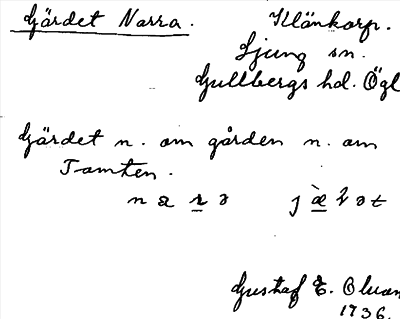 Gärdet Norra. Klänkorp.
Ljung sn.
Gullbergs hd. Ögl
Gärdet n. om gården n. om
Tomten.
Gustaf E.
1736.